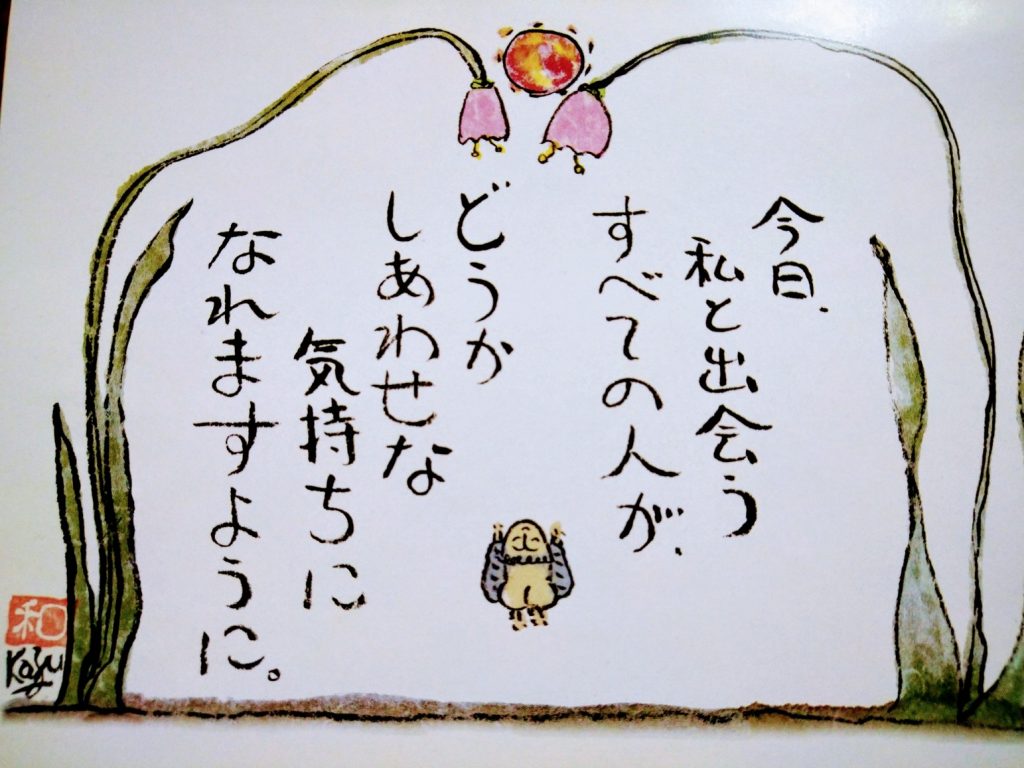 今日、
私と出会う
すべての人が、
どうか
しあわせな
気持ちに
なれますように。
和
Kazu